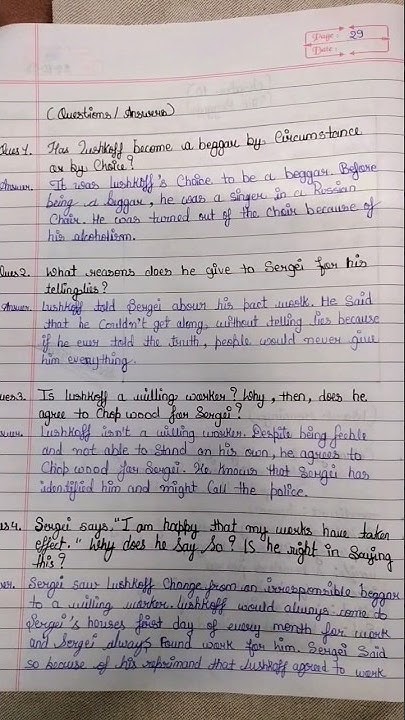 Page: 29
Date:
(Questions/Answers)
Ques 1. Has Lushkoff become a beggar by Circumstance
or by Choice?
Answer. It was lushkoff's Choice to be a beggar. Before
being a beggar, he was a singer in a Russian
Choir. He was turned out of the Choir because of
his alcoholism.
Ques 2. What reasons does he give to Sergei for his
telling lies?
Answer. Lushkoff told Sergei about his past work. He Said
that he Couldn't get along, without telling lies because
if he ever told the truth, people would never give
him everything.
Ques 3. Is lushkoff a willing worker? Why, then, does he
agree to Chop wood for Sergei?
Answer. Lushkoff isn't a willing worker. Despite being feeble
and not able to Stand on his own, he agrees to
Chop wood for Sergei. He Knows that Sergei has
identified him and might Call the police.
Ques 4. Sergei says. "I am happy that my works have taken
effect." Why does he Say So? IS he right in Saying
this?
Answer. Sergei saw lushkoff Change from an irresponsible beggar
to a willing worker. lushkoff would always come to
Sergei's houses first day of every month for work
and Sergei always found work for him. Sergei Said
so because of his reprimand that lushkoff agreed to work